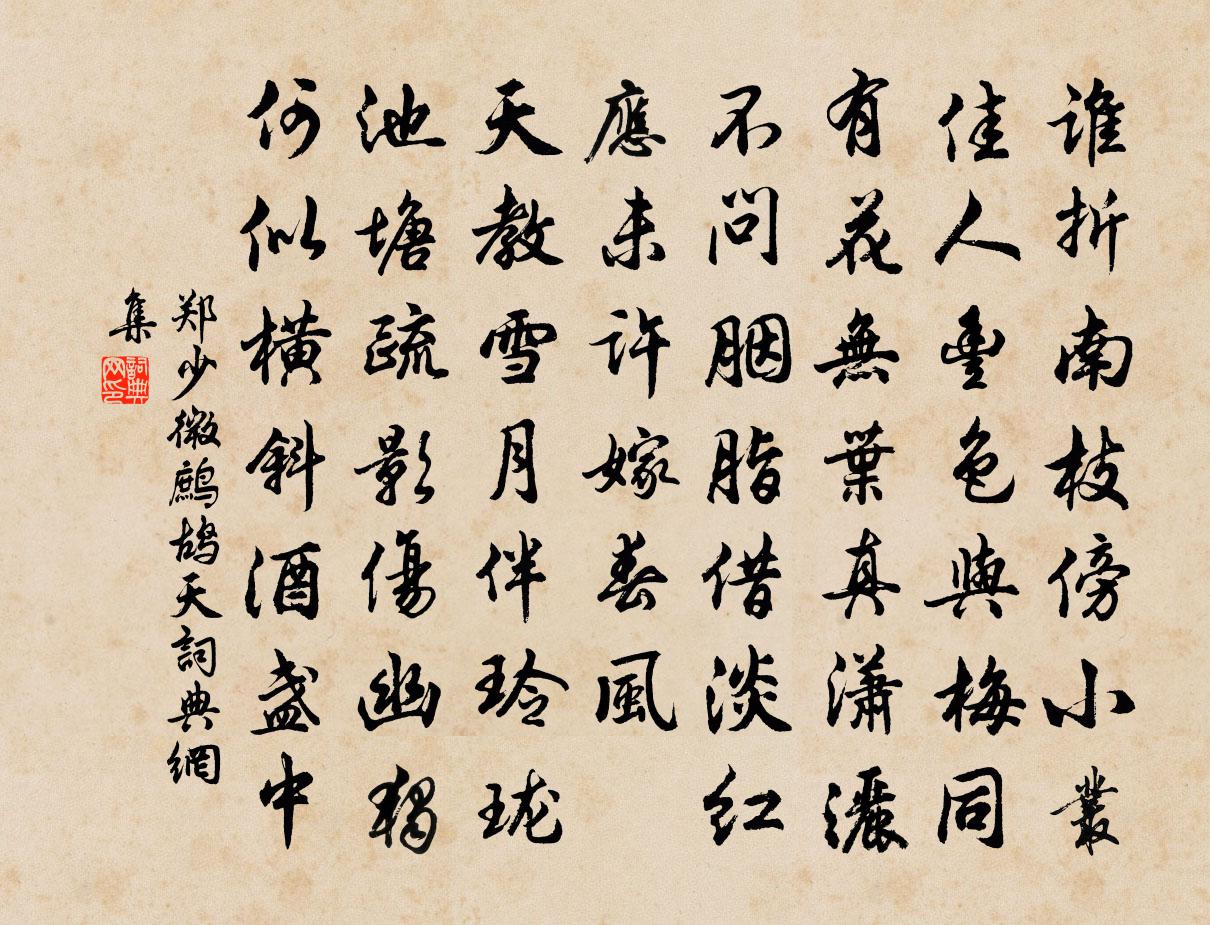 誰折南枝傍小叢
佳人豐色與梅同
有花無葉真瀟灑
不問胭脂借淡紅
應未許嫁春風
天教雪月伴玲珑
池塘疏影傷幽獨
何似橫斜酒盞中
郑少微鷓鴣天詞典網
集
詞典
网印